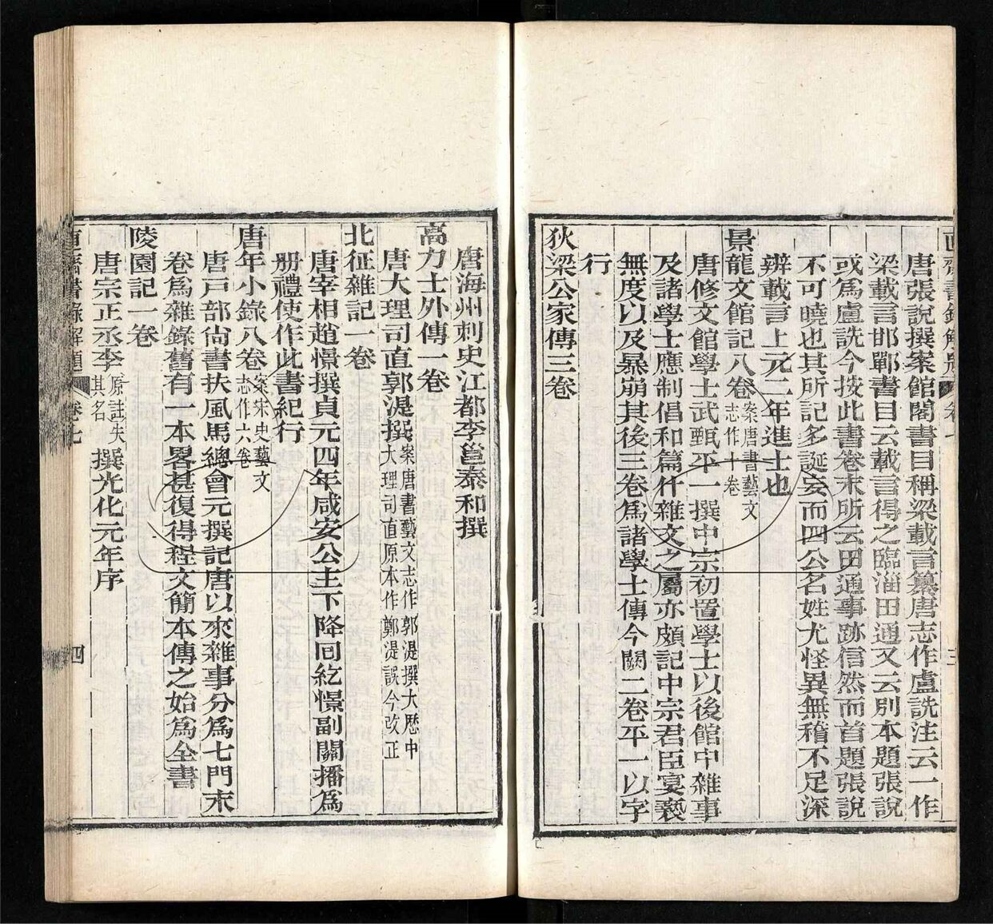 直齋書錄解題 卷七 三
唐張說撰案館閣書目稱梁載言纂唐志作盧詵注云一作
梁載言邯鄲書目云載言得之臨淄田通又云別本題張說
或爲盧詵今按此書卷末所云田通事跡信然而首題張說
不可曉也其所記多誕妄而四公名姓尤怪異無稽不足深
辨載言上元二年進士也
景龍文館記八卷案唐書藝文志作十卷
唐修文館學士武甄平一撰中宗初置學士以後館中雜事
及諸學士應制倡和篇什雜文之屬亦頗記中宗君臣宴褻
無度以及暴崩其後三卷爲諸學士傳今闕二卷平一以字
行
狄梁公家傳三卷
唐海州刺史江都李邕泰和撰
高力士外傳一卷
唐大理司直郭湜撰案唐書藝文志作郭湜撰大歷中大理司直原本作鄭湜誤今改正
北征雜記一卷
唐宰相趙憬撰貞元四年咸安公主下降回紇憬副關播爲
册禮使作此書紀行
唐年小錄八卷案宋史藝文志作六卷
唐戸部尙書扶風馬總會元撰記唐以來雜事分爲七門末
卷爲雜錄舊有一本畧甚復得程文簡本傳之始爲全書
陵園記一卷
唐宗正丞李原註失其名撰光化元年序
直齋書錄解題 卷七 四